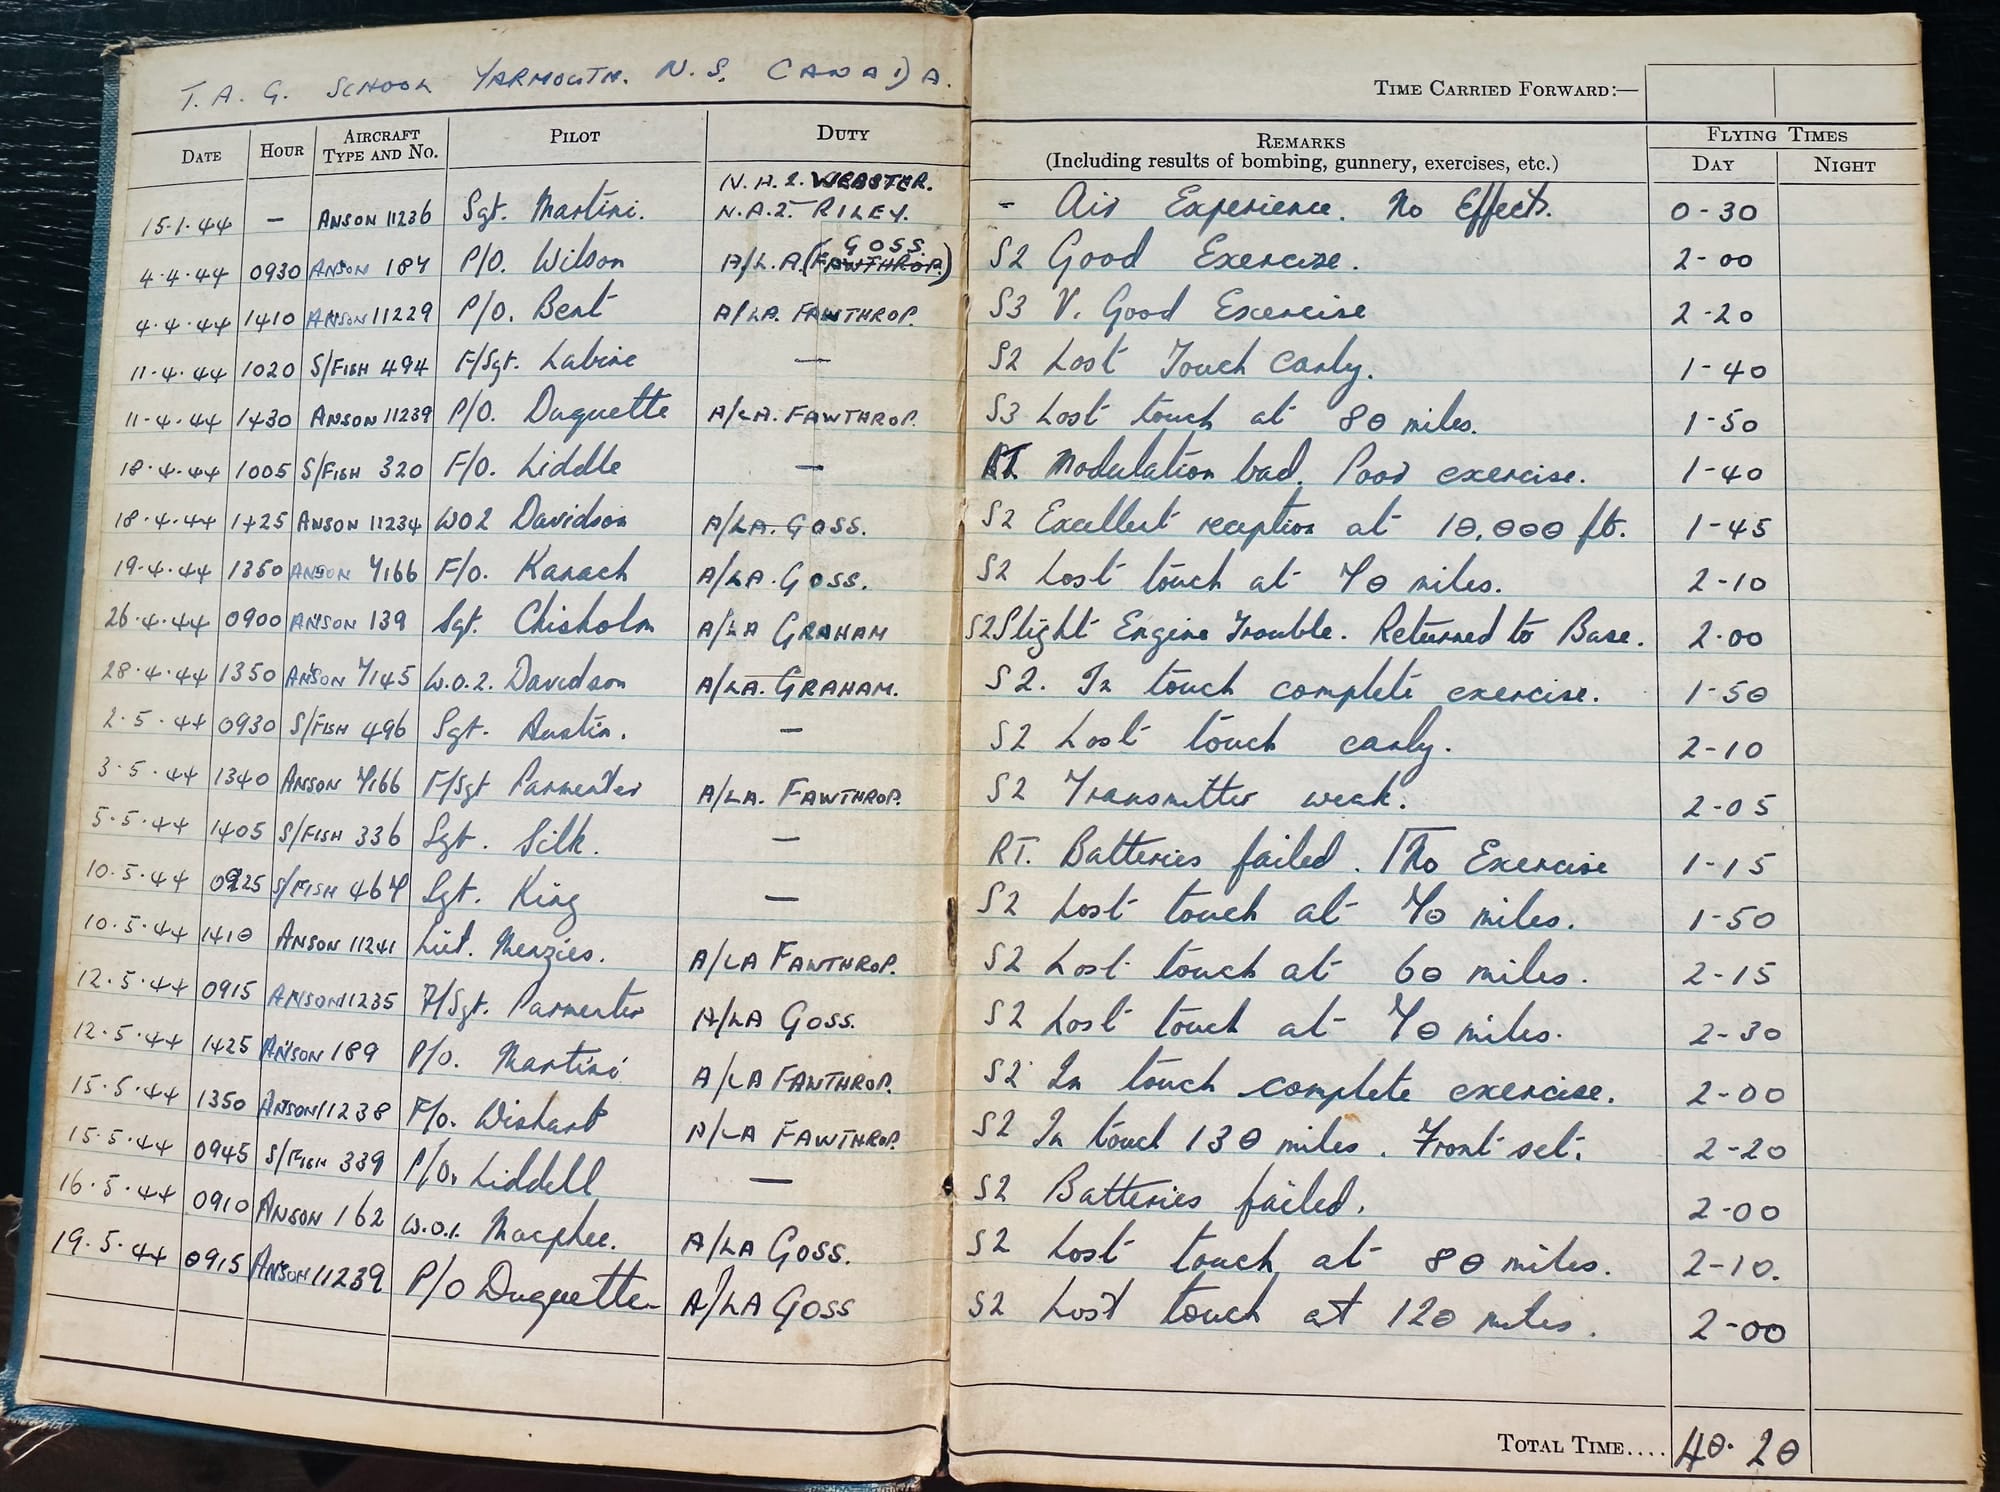 T. A. G. SCHOOL YARMOUTH. N. S. CANADA.
TIME CARRIED FORWARD:—
DATE HOUR AIRCRAFT TYPE AND NO. PILOT DUTY REMARKS (Including results of bombing, gunnery, exercises, etc.) FLYING TIMES DAY NIGHT
N.A.2. WEBSTER.
15.1.44 — ANSON 11236 Sgt. Martini. N.A.2. RILEY. - Air Experience. No Effects. 0-30
GOSS
4.4.44 0930 ANSON 187 P/O. Wilson A/L.A. (FAWTHROP.) S2 Good Exercise. 2-00
4.4.44 1410 ANSON 11229 P/O. Bent A/LA. FAWTHROP. S3 V. Good Exercise 2-20
11.4.44 1020 S/FISH 494 F/Sgt. Labine — S2 Lost Touch Early. 1-40
11.4.44 1430 ANSON 11239 P/O. Duquette A/LA. FAWTHROP. S3 Lost touch at 80 miles. 1-50
18.4.44 1005 S/FISH 320 F/O. Liddle — RT Modulation bad. Poor exercise. 1-40
18.4.44 1425 ANSON 11234 WO2 Davidson A/LA. GOSS. S2 Excellent reception at 10,000 ft. 1-45
19.4.44 1350 ANSON 7166 F/O. Karach A/LA. GOSS. S2 Lost touch at 70 miles. 2-10
26.4.44 0900 ANSON 139 Sgt. Chisholm A/LA GRAHAM S2 Slight Engine Trouble. Returned to Base. 2.00
28.4.44 1350 ANSON 7145 W.O.2. Davidson A/LA. GRAHAM. S2. In touch complete exercise. 1-50
2.5.44 0930 S/FISH 496 Sgt. Austin. — S2 Lost touch early. 2-10
3.5.44 1340 ANSON 7166 F/Sgt Parmenter A/LA. FAWTHROP. S2 Transmitter weak. 2-05
5.5.44 1405 S/FISH 336 Sgt. Silk. — RT. Batteries failed. No Exercise 1-15
10.5.44 0925 S/FISH 467 Sgt. King — S2 Lost touch at 70 miles. 1-50
10.5.44 1410 ANSON 11241 Liut. Menzies. A/LA FAWTHROP. S2 Lost touch at 60 miles. 2-15
12.5.44 0915 ANSON 11235 F/Sgt. Parmenter A/LA GOSS. S2 Lost touch at 70 miles. 2-30
12.5.44 1425 ANSON 189 P/O. Martini A/LA FAWTHROP. S2 In touch complete exercise. 2-00
15.5.44 1350 ANSON 11238 F/O. Wishart A/LA FAWTHROP. S2 In touch 130 miles. Front set. 2-20
15.5.44 0945 S/FISH 339 P/O. Liddell — S2 Batteries failed. 2-00
16.5.44 0910 ANSON 162 W.O.1. Macphee. A/LA GOSS. S2 Lost touch at 80 miles. 2-10.
19.5.44 0915 ANSON 11239 P/O Duquette A/LA GOSS S2 Lost touch at 120 miles. 2-00
TOTAL TIME.... 40.20